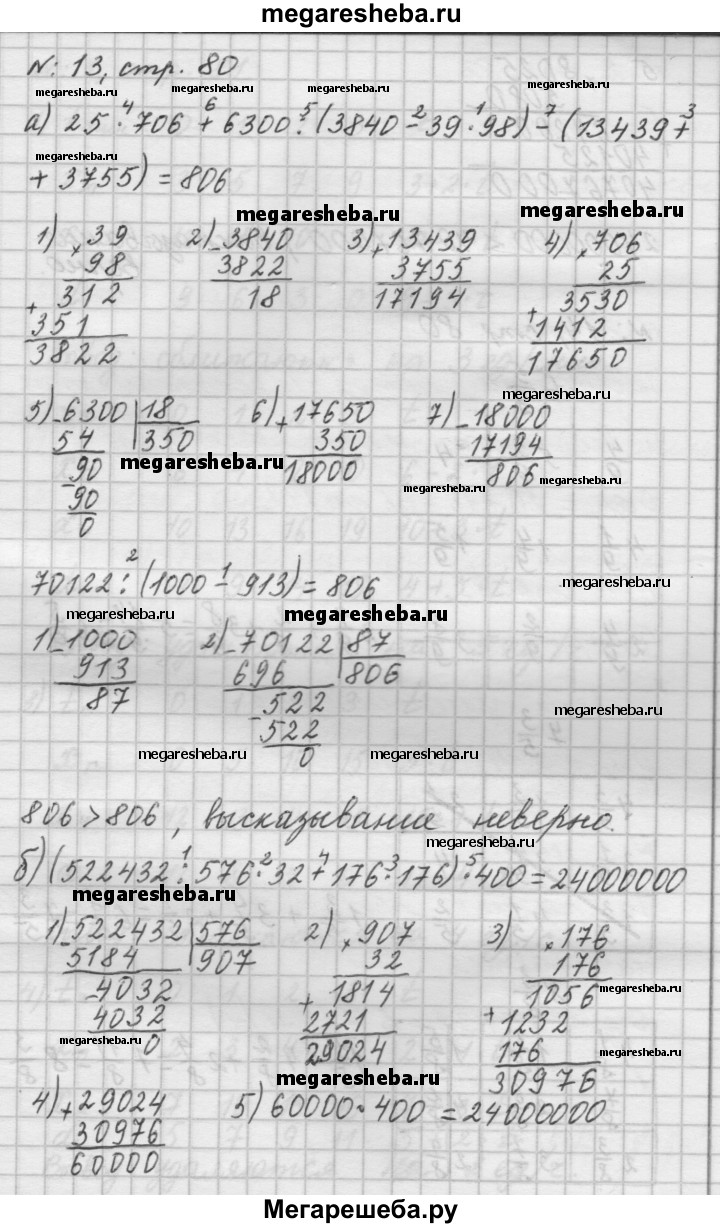 megaresheba.ru
№: 13, стр. 80
megaresheba.ru megaresheba.ru megaresheba.ru
4 6 5 2 1 7 3
а) 25 · 706 + 6300 : (3840 - 39 · 98) - (13439 +
megaresheba.ru megaresheba.ru megaresheba.ru
+ 3755) = 806
megaresheba.ru megaresheba.ru
1) × 39 2) - 3840 3) + 13439 4) × 706
98 3822 3755 25
+ 312 18 17194 + 3530
351 1412
3822 17650
megaresheba.ru
5) - 6300 | 18 6) + 17650 7) - 18000
54 350 350 17194
- 90 18000 806
90
0
megaresheba.ru megaresheba.ru megaresheba.ru
2 1
70122 : (1000 - 913) = 806
megaresheba.ru
megaresheba.ru megaresheba.ru megaresheba.ru
1) - 1000 2) - 70122 | 87
913 696 806
87 - 522
522
0
megaresheba.ru
megaresheba.ru megaresheba.ru
806 > 806, высказывание неверно.
megaresheba.ru
1 2 4 3 5
б) (522432 : 576 · 32 + 176 · 176) · 400 = 24000000
megaresheba.ru
1) - 522432 | 576 2) × 907 3) × 176
5184 907 32 176
- 4032 + 1814 1056
4032 2721 + 1232
0 29024 176
30976
megaresheba.ru
megaresheba.ru megaresheba.ru
megaresheba.ru
4) + 29024 5) 60000 · 400 = 24000000
30976
60000
megaresheba.ru
Мегарешеба.ру